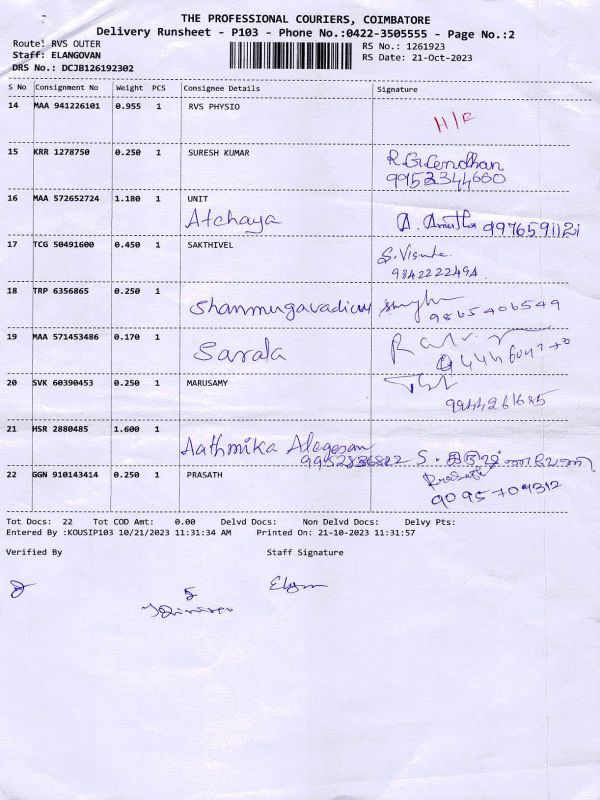 THE PROFESSIONAL COURIERS, COIMBATORE
Delivery Runsheet - P103 - Phone No.:0422-3505555 - Page No.:2
Route: RVS OUTER RS No.: 1261923
Staff: ELANGOVAN RS Date: 21-Oct-2023
DRS No.: DCJB126192302
S No Consignment No Weight PCS Consignee Details Signature
14 MAA 941226101 0.955 1 RVS PHYSIO
15 KRR 1278750 0.250 1 SURESH KUMAR
9952344660
16 MAA 572652724 1.180 1 UNIT
Atchaya A. Amutha 9976591121
17 TCG 50491600 0.450 1 SAKTHIVEL
9842222494
18 TRP 6356865 0.250 1
Shanmugavadivu 9865406549
19 MAA 571453486 0.170 1
Sarala
20 SVK 60390453 0.250 1 MARUSAMY
9944261685
21 HSR 2880485 1.600 1
Aathmika Alagesan
9952836822
22 GGN 910143414 0.250 1 PRASATH Prasath
9095704312
Tot Docs: 22 Tot COD Amt: 0.00 Delvd Docs: Non Delvd Docs: Delvy Pts:
Entered By :KOUSIP103 10/21/2023 11:31:34 AM Printed On: 21-10-2023 11:31:57
Verified By Staff Signature